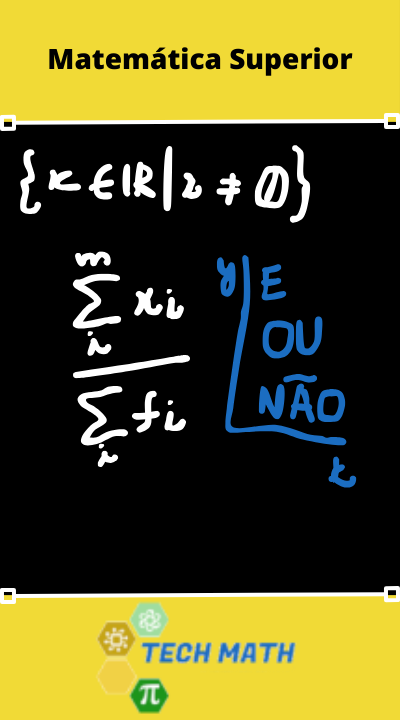 Matemática Superior
{x ∈ ℝ | x ≠ ∅}
m
∑ xi
i
∑ fi
i
y
E
OU
NÃO
x
π
TECH MATH